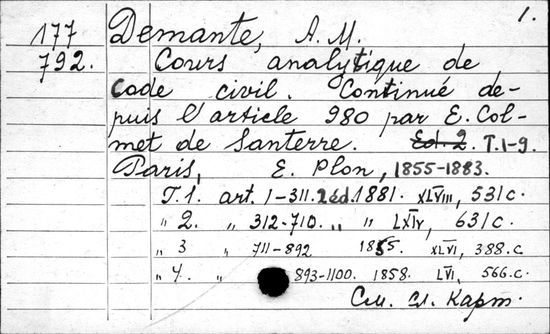 1.
177 Demante, A. M.
792. Cours analytique de
Code civil. Continué de-
puis l'article 980 par E. Col-
met de Santerre. Ed. 2. T. 1-9.
Paris, E. Plon, 1855-1883.
T. 1. art. 1-311. 2 éd. 1881. XLVIII, 531 c.
" 2. " 312-710. " " LXIV, 631 c.
" 3 " 711-892 1855. XLVI, 388. c
" 4. " 893-1100. 1858. LVI, 566. c.
См. сл. карт.